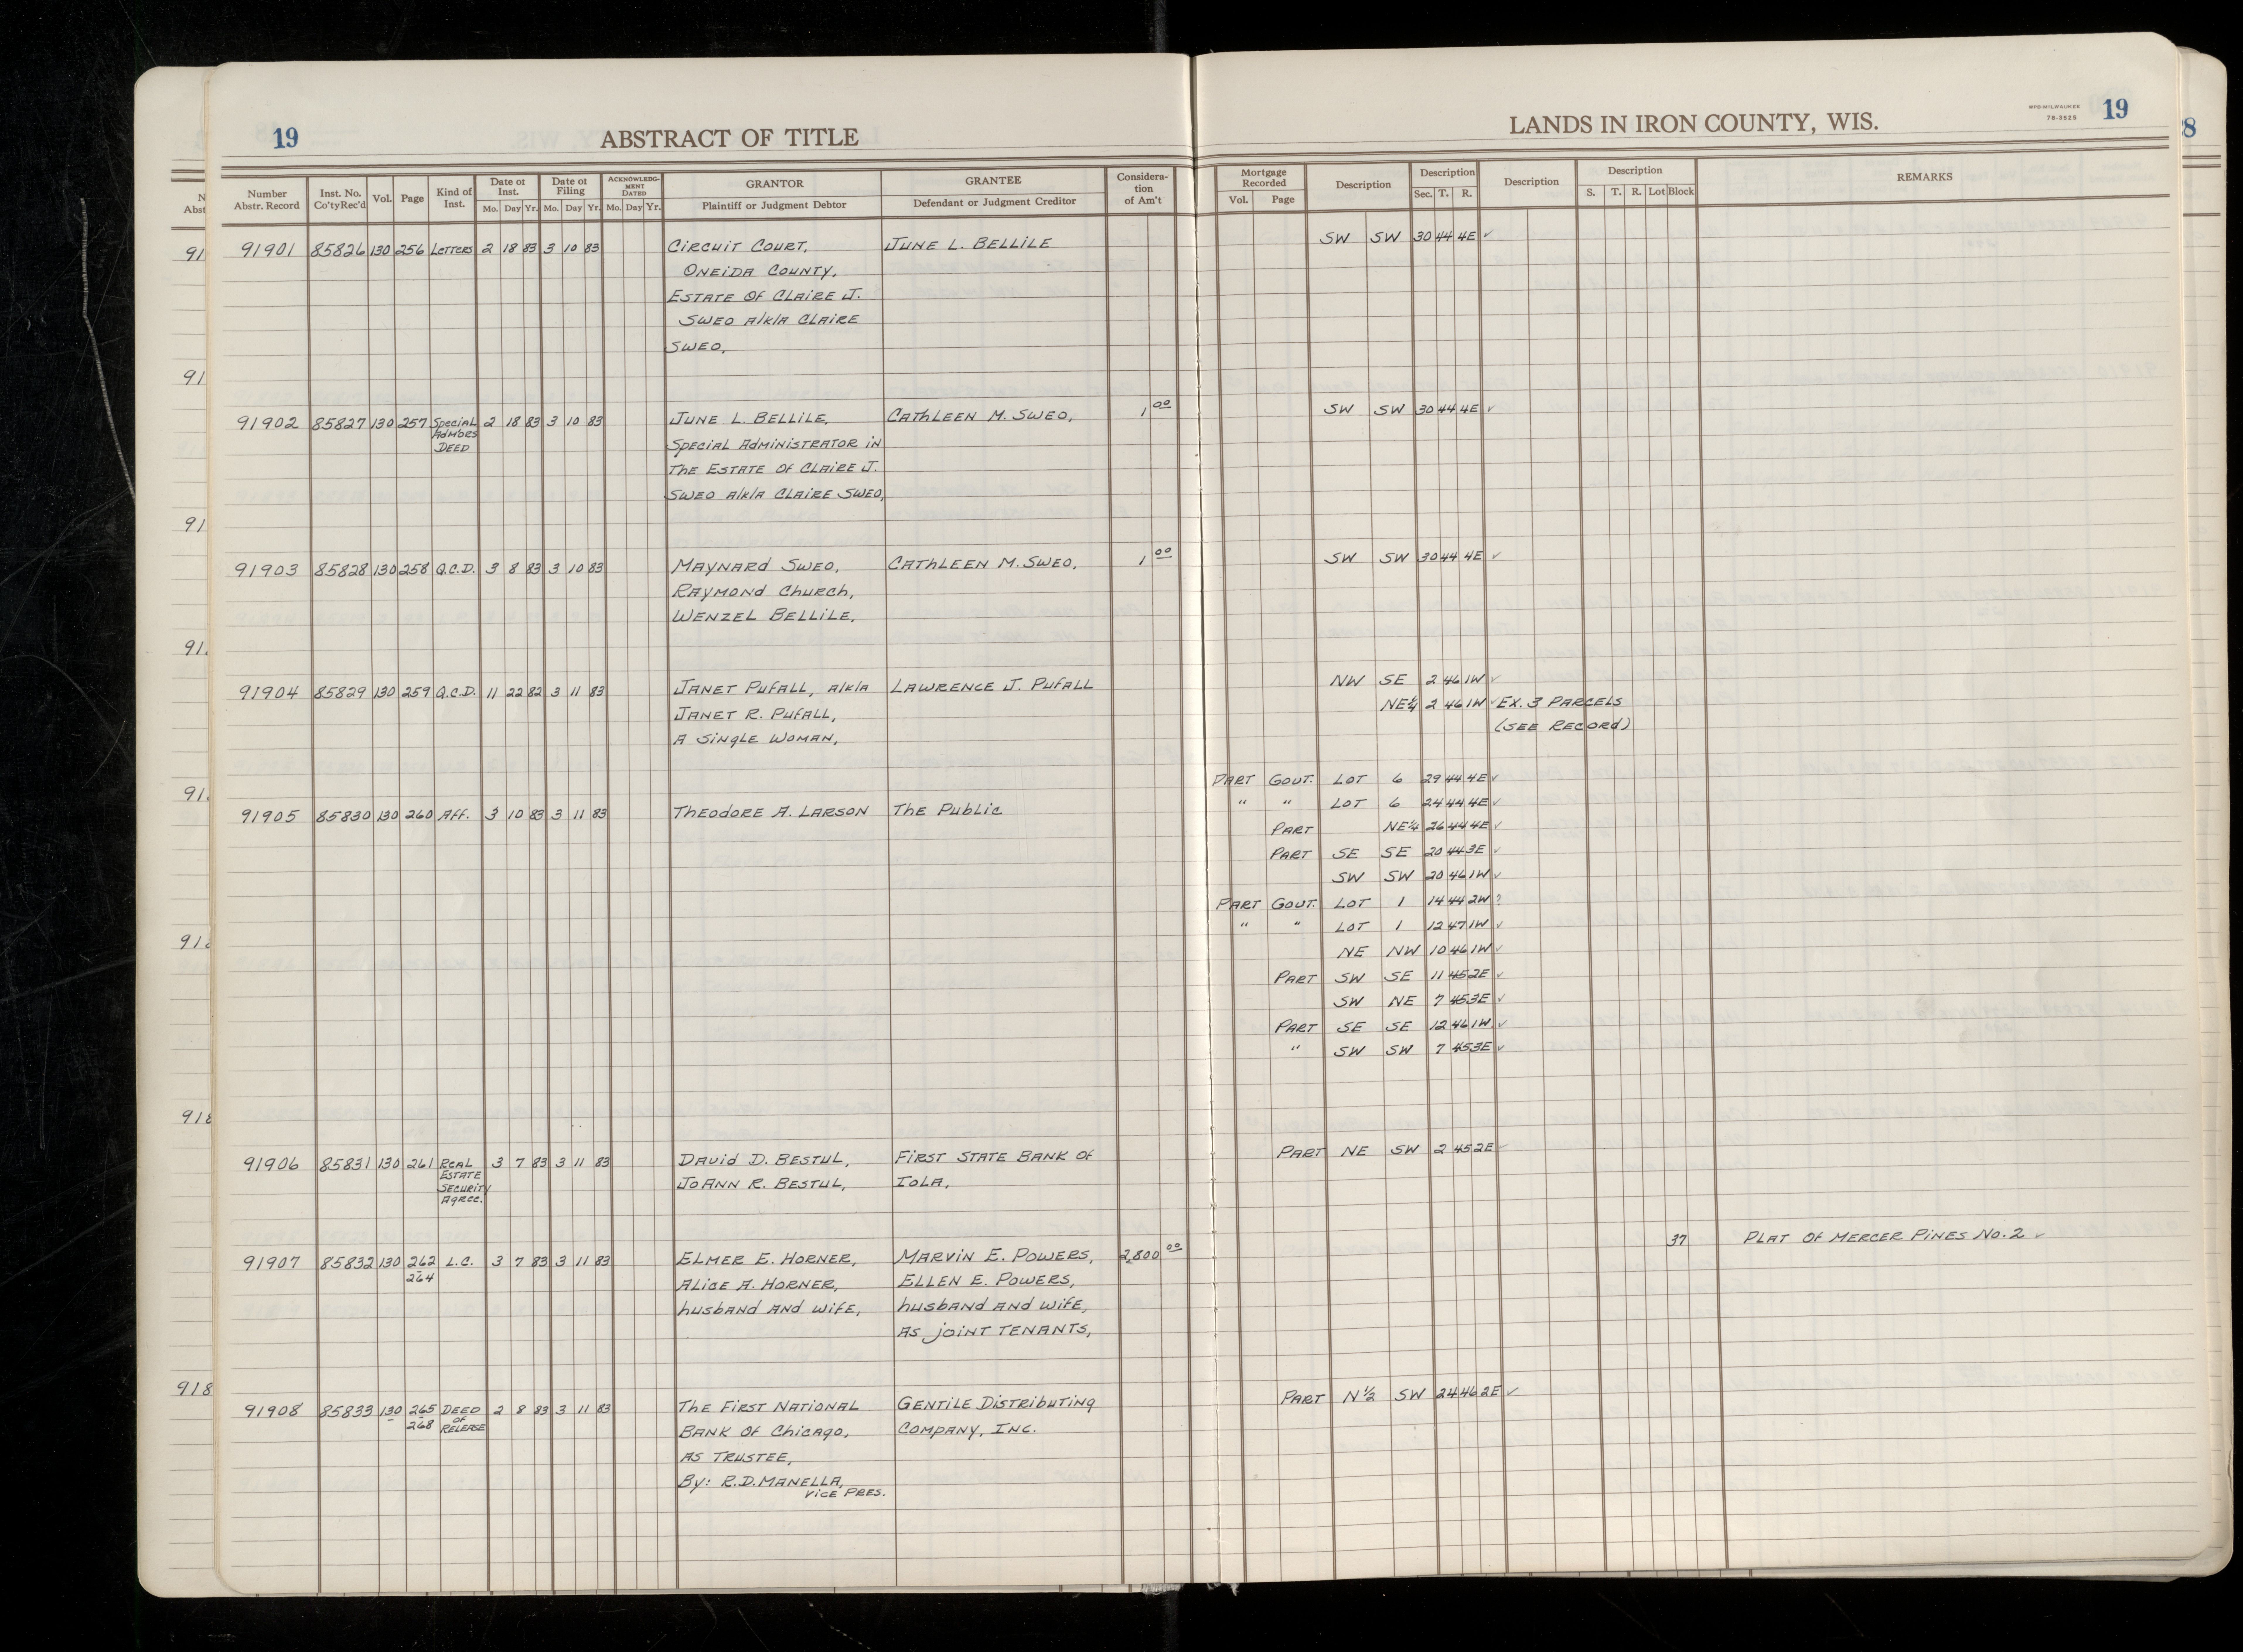 19 ABSTRACT OF TITLE
Number Abstr. Record | Inst. No. Co'ty Rec'd | Vol. | Page | Kind of Inst. | Date of Inst. Mo. Day Yr. | Date of Filing Mo. Day Yr. | ACKNOWLEDGMENT DATED Mo. Day Yr. | GRANTOR Plaintiff or Judgment Debtor | GRANTEE Defendant or Judgment Creditor | Consideration of Am't
91901 85826 130 256 LETTERS 2 18 83 3 10 83 CIRCUIT COURT, JUNE L. BELLILE
ONEIDA COUNTY,
ESTATE OF CLAIRE J.
SWEO A/K/A CLAIRE
SWEO,
91902 85827 130 257 SPECIAL 2 18 83 3 10 83 JUNE L. BELLILE, CATHLEEN M. SWEO, 1 00
ADMORS SPECIAL ADMINISTRATOR IN
DEED THE ESTATE OF CLAIRE J.
SWEO A/K/A CLAIRE SWEO,
91903 85828 130 258 Q.C.D. 3 8 83 3 10 83 MAYNARD SWEO, CATHLEEN M. SWEO, 1 00
RAYMOND CHURCH,
WENZEL BELLILE,
91904 85829 130 259 Q.C.D. 11 22 82 3 11 83 JANET PUFALL, A/K/A LAWRENCE J. PUFALL
JANET R. PUFALL,
A SINGLE WOMAN,
91905 85830 130 260 AFF. 3 10 83 3 11 83 THEODORE A. LARSON THE PUBLIC
91906 85831 130 261 REAL 3 7 83 3 11 83 DAVID D. BESTUL, FIRST STATE BANK OF
ESTATE JOANN R. BESTUL, IOLA,
SECURITY
AGREE.
91907 85832 130 262 L.C. 3 7 83 3 11 83 ELMER E. HORNER, MARVIN E. POWERS, 2,800 00
264 ALICE A. HORNER, ELLEN E. POWERS,
HUSBAND AND WIFE, HUSBAND AND WIFE,
AS JOINT TENANTS,
91908 85833 130 265 DEED 2 8 83 3 11 83 THE FIRST NATIONAL GENTILE DISTRIBUTING
268 OF RELEASE BANK OF CHICAGO, COMPANY, INC.
AS TRUSTEE,
BY: R.D. MANELLA,
VICE PRES.
LANDS IN IRON COUNTY, WIS. 19
WPB-MILWAUKEE
78-3525
Mortgage Recorded Vol. Page | Description | Description Sec. T. R. | Description | Description S. T. R. Lot Block | REMARKS
SW SW 30 44 4E ✓
SW SW 30 44 4E ✓
SW SW 30 44 4E ✓
NW SE 2 46 1W ✓
NE¼ 2 46 1W ✓ EX. 3 PARCELS
(SEE RECORD)
PART GOVT. LOT 6 29 44 4E ✓
" " LOT 6 24 44 4E ✓
PART NE¼ 26 44 4E ✓
PART SE SE 20 44 3E ✓
SW SW 20 46 1W ✓
PART GOVT. LOT 1 14 44 2W ?
" " LOT 1 12 47 1W ✓
NE NW 10 46 1W ✓
PART SW SE 11 45 2E ✓
SW NE 7 45 3E ✓
PART SE SE 12 46 1W ✓
" SW SW 7 45 3E ✓
PART NE SW 2 45 2E ✓
37 PLAT OF MERCER PINES NO. 2 ✓
PART N½ SW 24 46 2E ✓